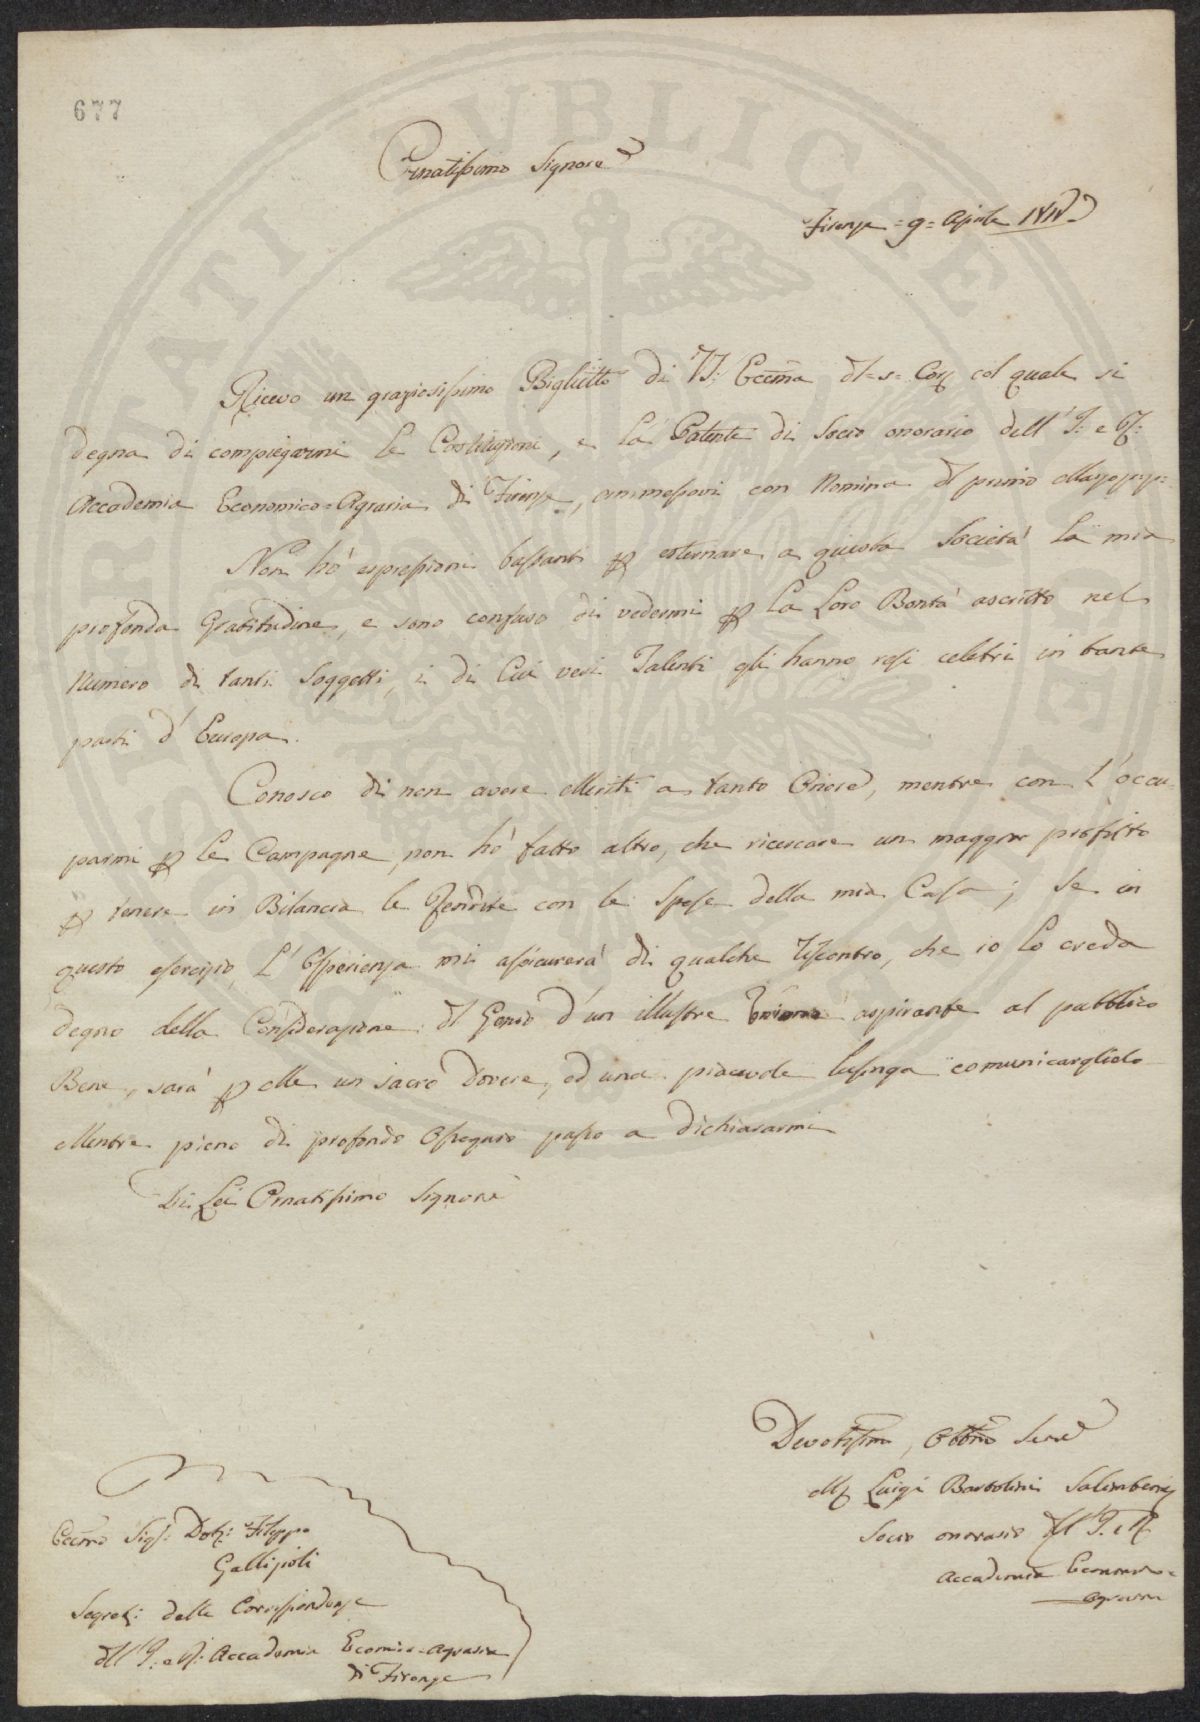 677
Ornatissimo Signore
Firenze = 9 = Aprile 1818
Ricevo un graziosissimo Biglietto di VS: Eccma del = s = Corr col quale si
degna di compiegarmi le Costituzioni, e la Patente di Socio onorario dell' I: e R:
Accademia Economico = Agraria di Firenze, ammessovi con Nomina del primo
Non hò espressioni bastanti p esternare a questa Società la mia
profonda Gratitudine, e sono confuso di vedermi p la Loro Bontà ascritto nel
Numero di tanti Soggetti, i di Cui veri Talenti gli hanno resi celebri in tante
parti d' Europa.
Conosco di non avere Meriti a tanto Onore, mentre con L' occu-
parmi p le Campagne, non hò fatto altro, che ricercare un maggior profitto
p tenere in Bilancia le Rendite con le Spese della mia Casa; Se in
questo esercizio, L' Esperienza mi assicurerà di qualche riscontro, che io lo creda
degno della Considerazione del Genio d' un illustre aspirante al pubblico
Bene, sarà p Me un sacro dovere, ed una piacevole lusinga comunicarglielo
Mentre pieno di profondo Ossequio passo a dichiararmi
Di Lei Ornatissimo Signore
Devotissimo, Obbmo Serve
Mse Luigi Bartolini Salimbeni
Socio onorario dell' I. e R.
Accademia Economico =
Agraria
Eccmo Sigr: Dotr: Filippo
Gallizioli
Segret: delle Corrispondenze
dell' I: e R: Accademia Ecomico = Agraria
di Firenze